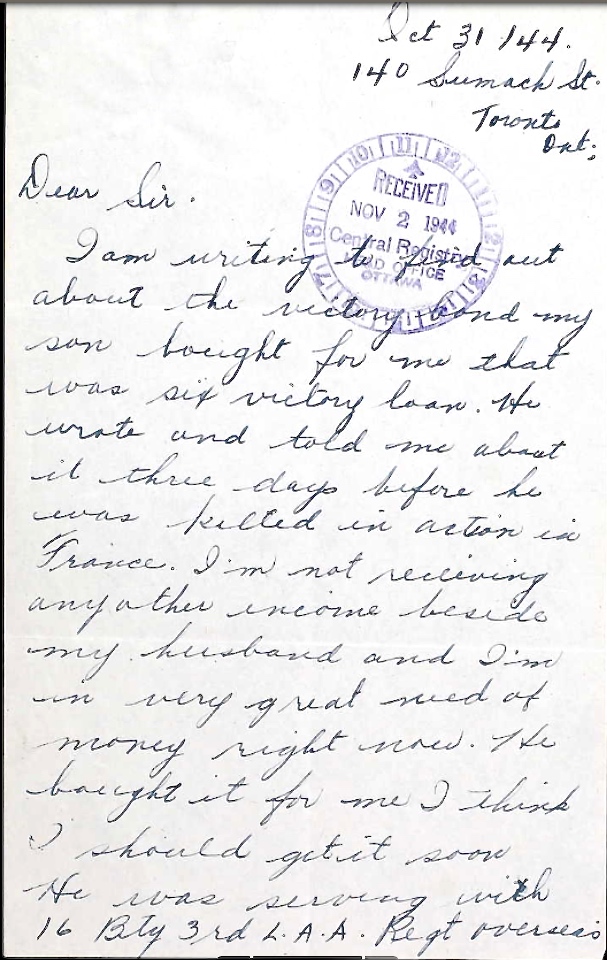 Oct 31/44.
140 Sumach St.
Toronto
Ont;
Dear Sir.
RECEIVED
NOV 2 1944
Central Registry
OFFICE
OTTAWA
I am writing to find out
about the victory bond my
son bought for me that
was six victory loan. He
wrote and told me about
it three days before he
was killed in action in
France. I'm not receiving
any other income beside
my husband and I'm
in very great need of
money right now. He
bought it for me I think
I should get it soon
He was serving with
16 Bty 3rd L.A.A. Regt overseas